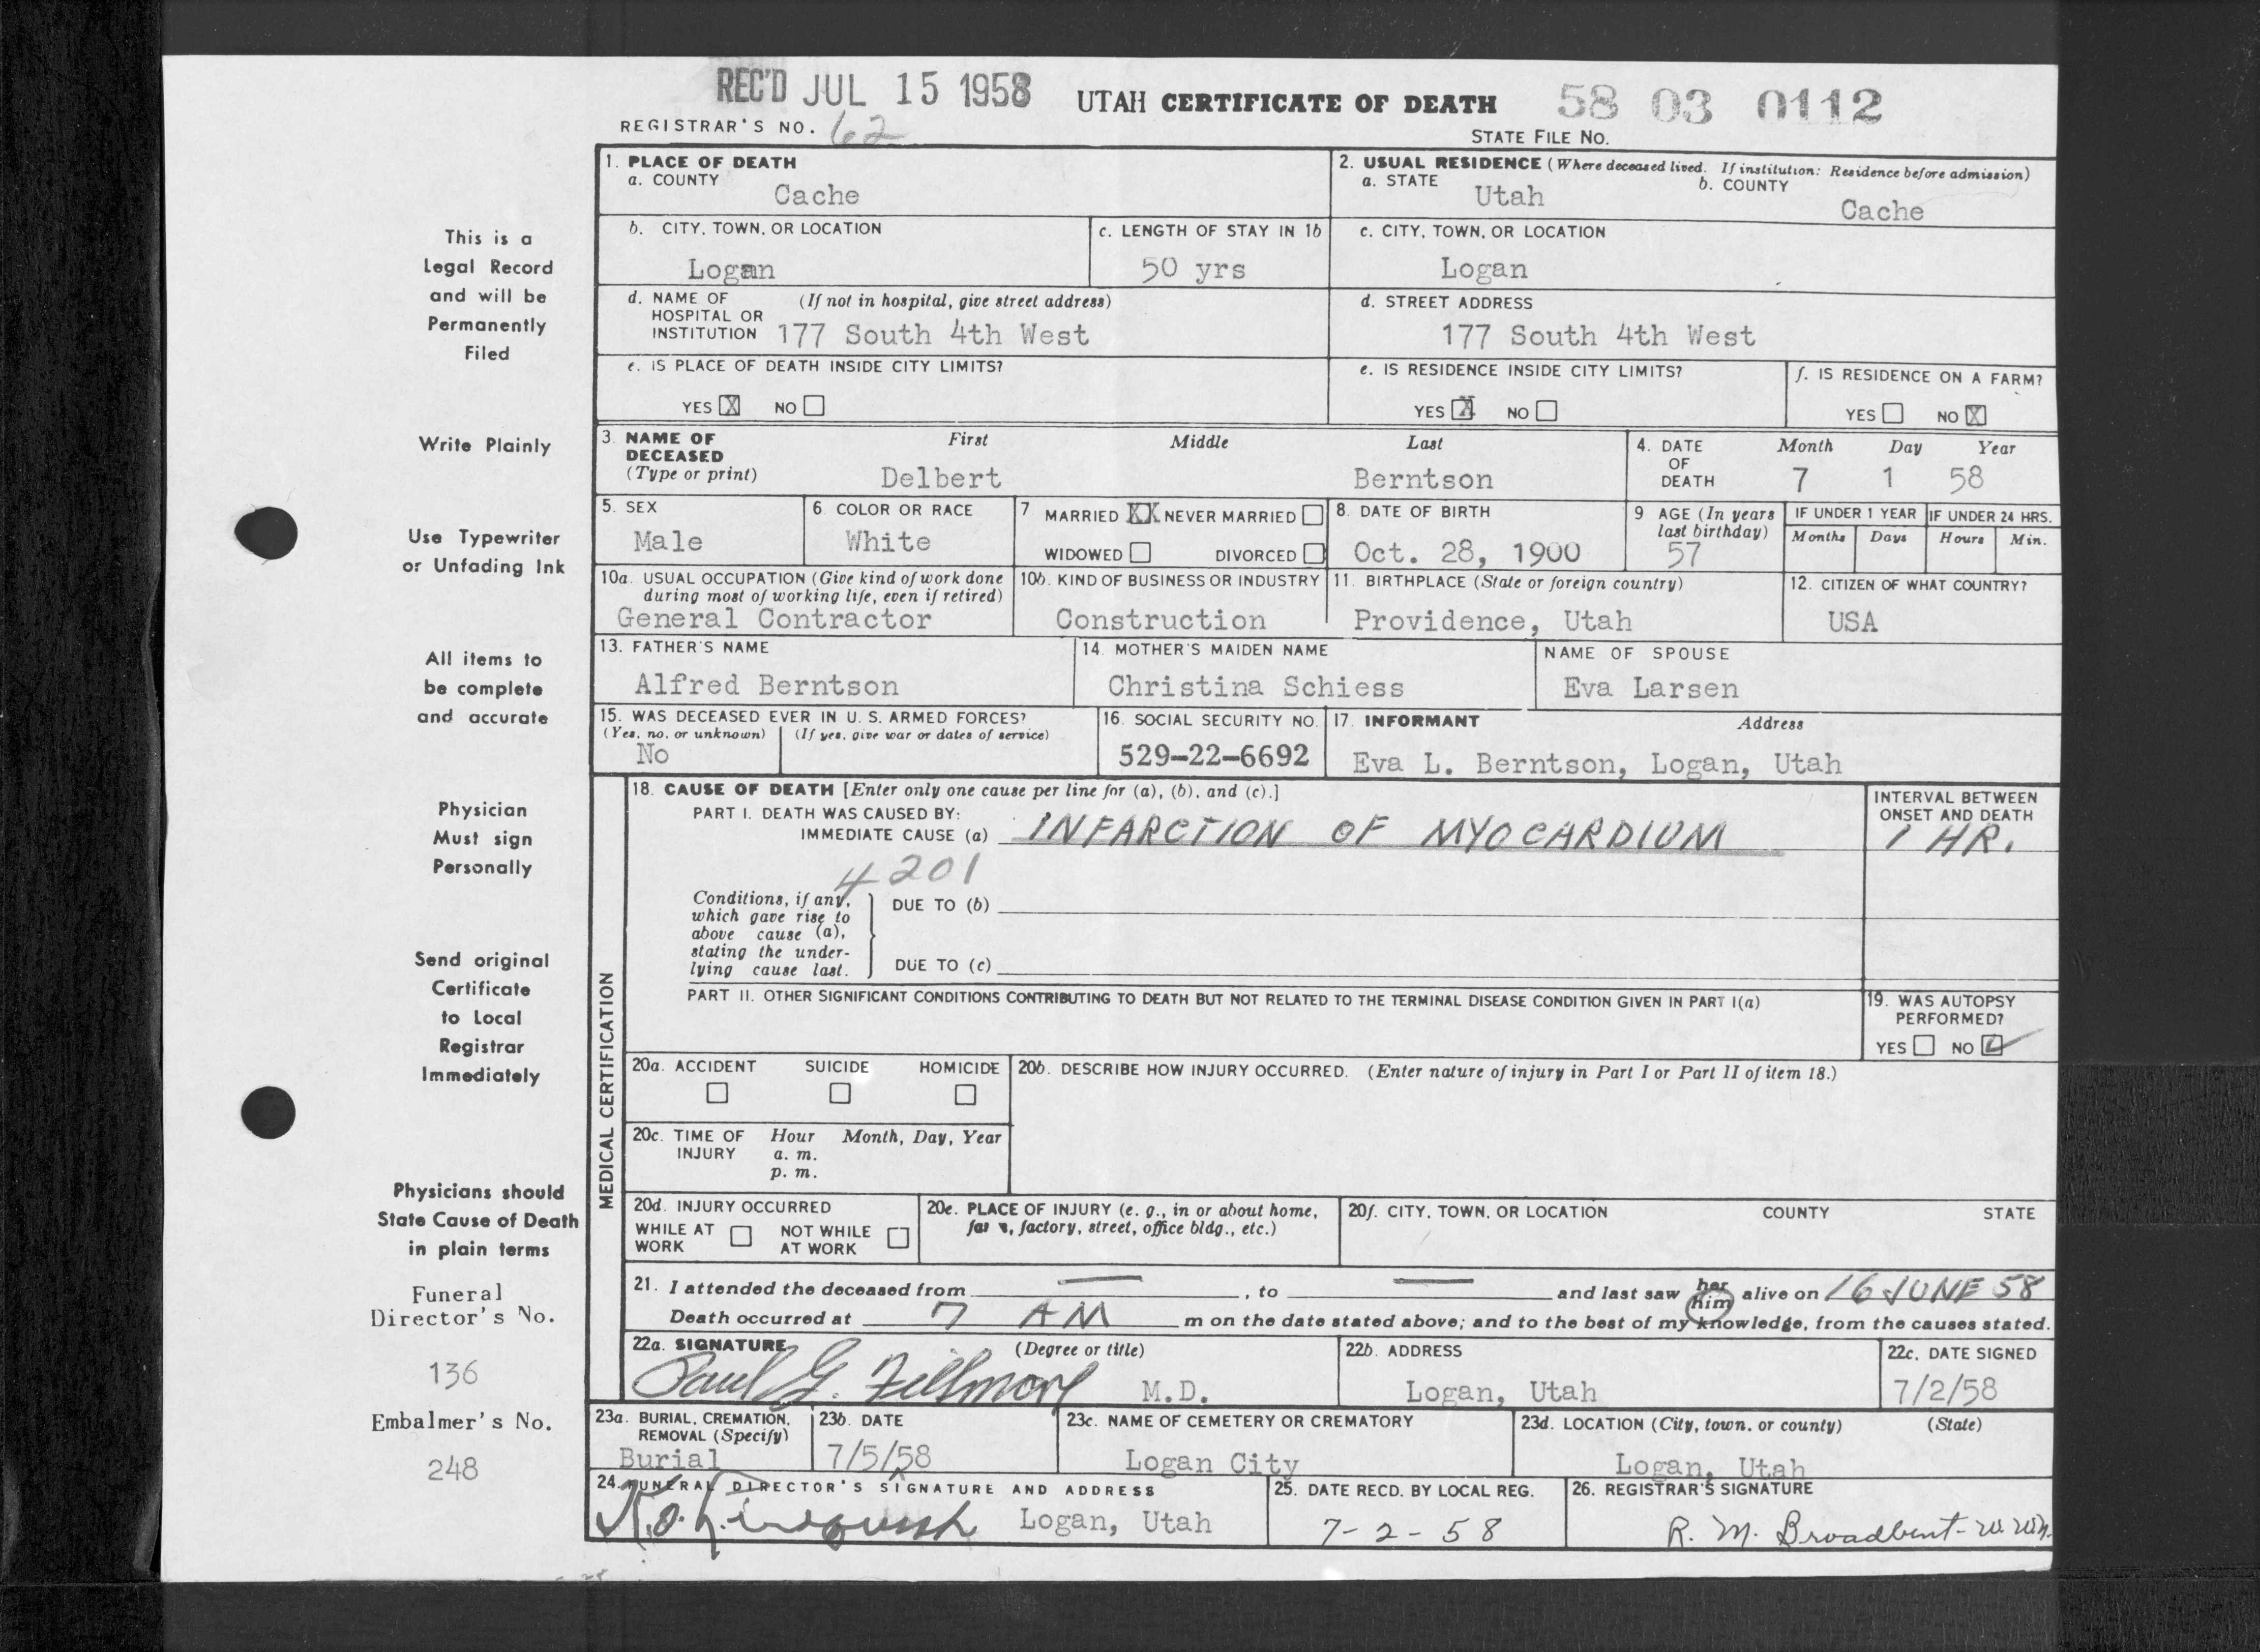 REC'D JUL 15 1958 UTAH CERTIFICATE OF DEATH 58 03 0112
REGISTRAR'S NO. 62 STATE FILE NO.
1. PLACE OF DEATH
a. COUNTY Cache
2. USUAL RESIDENCE (Where deceased lived. If institution: Residence before admission)
a. STATE Utah b. COUNTY Cache
b. CITY, TOWN, OR LOCATION Logan
c. LENGTH OF STAY IN 1b 50 yrs
c. CITY, TOWN, OR LOCATION Logan
d. NAME OF HOSPITAL OR INSTITUTION (If not in hospital, give street address) 177 South 4th West
d. STREET ADDRESS 177 South 4th West
e. IS PLACE OF DEATH INSIDE CITY LIMITS?
YES X NO
e. IS RESIDENCE INSIDE CITY LIMITS?
YES X NO
f. IS RESIDENCE ON A FARM?
YES NO X
3. NAME OF DECEASED (Type or print) First Middle Last
Delbert Berntson
4. DATE OF DEATH Month Day Year
7 1 58
5. SEX Male
6. COLOR OR RACE White
7. MARRIED XX NEVER MARRIED
WIDOWED DIVORCED
8. DATE OF BIRTH Oct. 28, 1900
9 AGE (In years last birthday) 57
IF UNDER 1 YEAR Months Days
IF UNDER 24 HRS. Hours Min.
10a. USUAL OCCUPATION (Give kind of work done during most of working life, even if retired)
General Contractor
10b. KIND OF BUSINESS OR INDUSTRY
Construction
11. BIRTHPLACE (State or foreign country)
Providence, Utah
12. CITIZEN OF WHAT COUNTRY?
USA
13. FATHER'S NAME
Alfred Berntson
14. MOTHER'S MAIDEN NAME
Christina Schiess
NAME OF SPOUSE
Eva Larsen
15. WAS DECEASED EVER IN U. S. ARMED FORCES?
(Yes, no, or unknown) (If yes, give war or dates of service)
No
16. SOCIAL SECURITY NO.
529-22-6692
17. INFORMANT Address
Eva L. Berntson, Logan, Utah
MEDICAL CERTIFICATION
18. CAUSE OF DEATH [Enter only one cause per line for (a), (b), and (c).]
PART I. DEATH WAS CAUSED BY:
IMMEDIATE CAUSE (a) INFARCTION OF MYOCARDIUM
INTERVAL BETWEEN ONSET AND DEATH
1 HR.
4201
Conditions, if any, which gave rise to above cause (a), stating the underlying cause last.
DUE TO (b)
DUE TO (c)
PART II. OTHER SIGNIFICANT CONDITIONS CONTRIBUTING TO DEATH BUT NOT RELATED TO THE TERMINAL DISEASE CONDITION GIVEN IN PART I(a)
19. WAS AUTOPSY PERFORMED?
YES NO ✓
20a. ACCIDENT SUICIDE HOMICIDE
20b. DESCRIBE HOW INJURY OCCURRED. (Enter nature of injury in Part I or Part II of item 18.)
20c. TIME OF INJURY Hour Month, Day, Year
a. m.
p. m.
20d. INJURY OCCURRED
WHILE AT WORK NOT WHILE AT WORK
20e. PLACE OF INJURY (e. g., in or about home, farm, factory, street, office bldg., etc.)
20f. CITY, TOWN, OR LOCATION COUNTY STATE
21. I attended the deceased from — , to — and last saw her him alive on 16 JUNE 58
Death occurred at 7 AM m on the date stated above; and to the best of my knowledge, from the causes stated.
22a. SIGNATURE (Degree or title)
Paul G. Fillmore M.D.
22b. ADDRESS
Logan, Utah
22c. DATE SIGNED
7/2/58
23a. BURIAL, CREMATION, REMOVAL (Specify)
Burial
23b. DATE
7/5/58
23c. NAME OF CEMETERY OR CREMATORY
Logan City
23d. LOCATION (City, town, or county) (State)
Logan, Utah
24. FUNERAL DIRECTOR'S SIGNATURE AND ADDRESS
Logan, Utah
25. DATE RECD. BY LOCAL REG.
7-2-58
26. REGISTRAR'S SIGNATURE
R. M. Broadbent
This is a
Legal Record
and will be
Permanently
Filed
Write Plainly
Use Typewriter
or Unfading Ink
All items to
be complete
and accurate
Physician
Must sign
Personally
Send original
Certificate
to Local
Registrar
Immediately
Physicians should
State Cause of Death
in plain terms
Funeral
Director's No.
136
Embalmer's No.
248